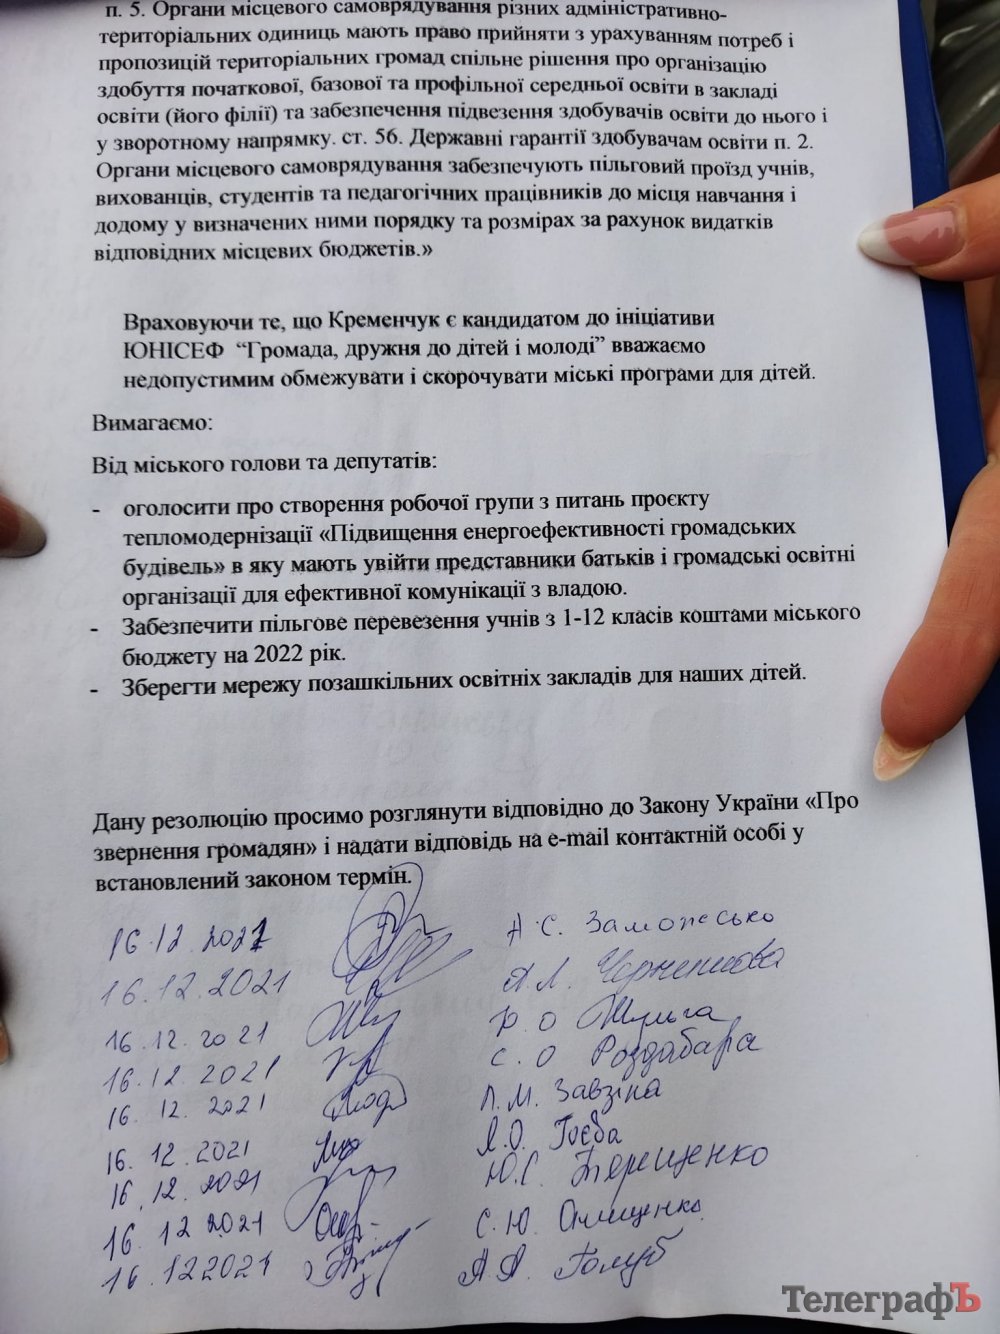 п. 5. Органи місцевого самоврядування різних адміністративно-
територіальних одиниць мають право прийняти з урахуванням потреб і
пропозицій територіальних громад спільне рішення про організацію
здобуття початкової, базової та профільної середньої освіти в закладі
освіти (його філії) та забезпечення підвезення здобувачів освіти до нього і
у зворотному напрямку. ст. 56. Державні гарантії здобувачам освіти п. 2.
Органи місцевого самоврядування забезпечують пільговий проїзд учнів,
вихованців, студентів та педагогічних працівників до місця навчання і
додому у визначених ними порядку та розмірах за рахунок видатків
відповідних місцевих бюджетів.»
Враховуючи те, що Кременчук є кандидатом до ініціативи
ЮНІСЕФ “Громада, дружня до дітей і молоді” вважаємо
недопустимим обмежувати і скорочувати міські програми для дітей.
Вимагаємо:
Від міського голови та депутатів:
- оголосити про створення робочої групи з питань проєкту
тепломодернізації «Підвищення енергоефективності громадських
будівель» в яку мають увійти представники батьків і громадські освітні
організації для ефективної комунікації з владою.
- Забезпечити пільгове перевезення учнів з 1-12 класів коштами міського
бюджету на 2022 рік.
- Зберегти мережу позашкільних освітніх закладів для наших дітей.
Дану резолюцію просимо розглянути відповідно до Закону України «Про
звернення громадян» і надати відповідь на e-mail контактній особі у
встановлений законом термін.
16.12.2021 А.С.
16.12.2021 А.Л.
16.12.2021 О Шульга
16.12.2021 С.О Роздабара
16.12.2021 Л.М. Завзіна
16.12.2021 Я.О.
16.12.2021 Ю.С. Терещенко
16.12.2021 С.Ю. Онищенко
16.12.2021 А.А. Голуб
ТелеграфЪ